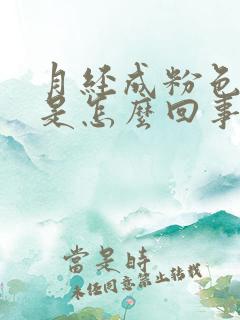 月經成粉色
是怎麼回事
當是時
未任同意禁止转载